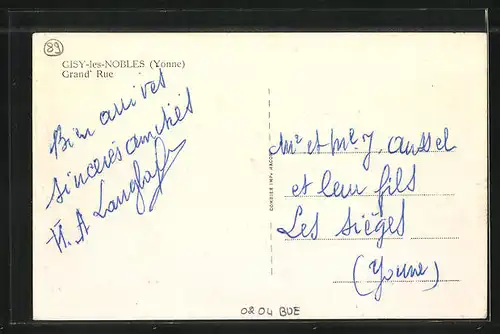 89
GISY-les-NOBLES (Yonne)
Grand' Rue
Bien arrivés
sincères amitiés
COMBIER IMP. MACON
Mr et Me J. Aussel
et leur fils
Les Sièges
(Yonne)
0204 BUE